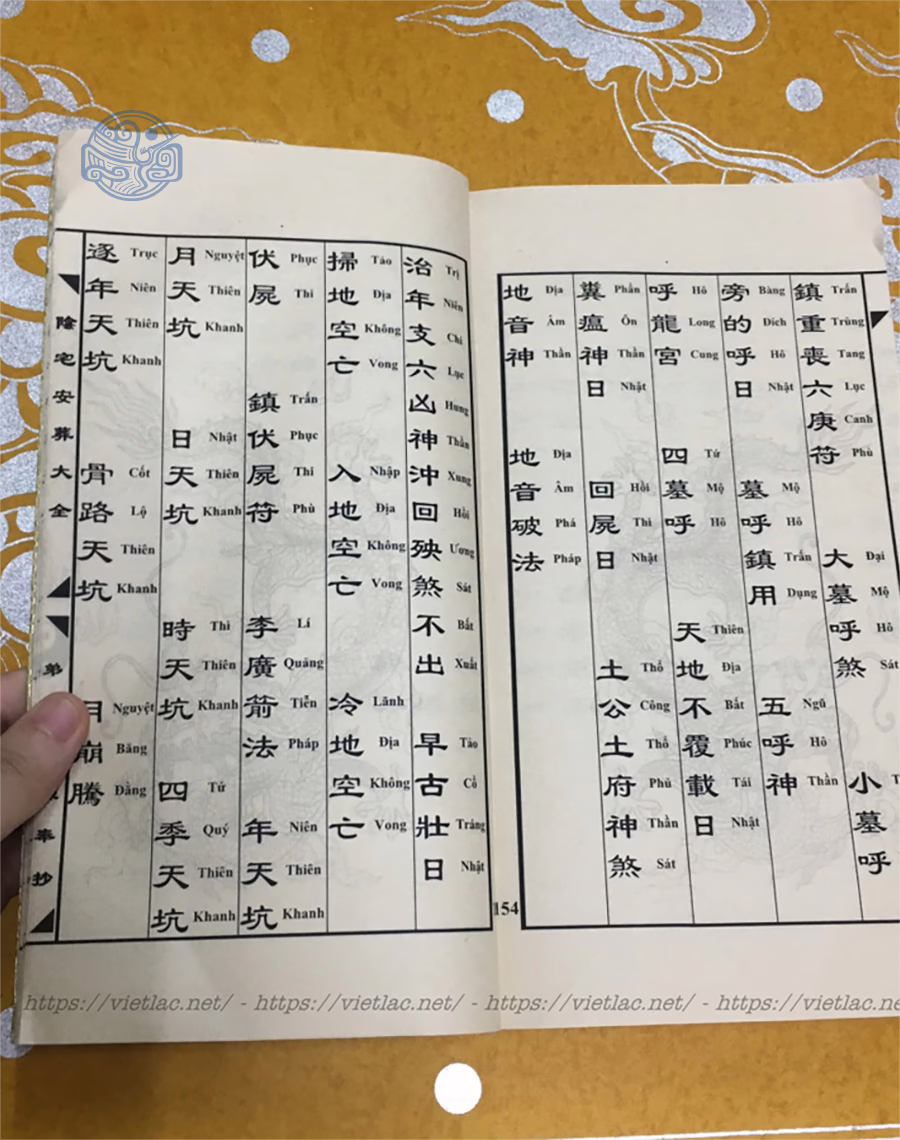 鎮重喪六庚符 大墓呼煞 小墓呼
Trấn Trùng Tang Lục Canh Phù Đại Mộ Hô Sát
旁的呼日 墓呼鎮用 五呼神
Bàng Đích Hô Nhật Mộ Hô Trấn Dụng Ngũ Hô Thần
呼龍宮 四墓呼 天地不覆載日
Hô Long Cung Tứ Mộ Hô Thiên Địa Bất Phúc Tái Nhật
糞瘟神日 回屍日 土公土府神煞
Phẩn Ôn Thần Nhật Hồi Thi Nhật Thổ Công Thổ Phủ Thần Sát
地音神 地音破法
Địa Âm Thần Địa Âm Phá Pháp
154
治年支六凶神沖回殃煞不出 早古壯日
Trị Niên Chi Lục Hung Thần Xung Hồi Ương Sát Bất Xuất Tảo Cổ Tráng Nhật
掃地空亡 入地空亡 冷地空亡
Tảo Địa Không Vong Nhập Địa Không Vong Lãnh Địa Không Vong
伏屍 鎮伏屍符 李廣箭法 年天坑
Phục Thi Trấn Phục Thi Phù Lí Quảng Tiễn Pháp Niên Thiên Khanh
月天坑 日天坑 時天坑 四季天坑
Nguyệt Thiên Khanh Nhật Thiên Khanh Thì Thiên Khanh Tứ Quý Thiên Khanh
逐年天坑 骨路天坑 月崩騰
Trục Niên Thiên Khanh Cốt Lộ Thiên Khanh Nguyệt Băng Đằng
陰宅安葬大全
弟
奉抄
https://vietlac.net/ - https://vietlac.net/ - https://vietlac.net/ - https://vietlac.ne